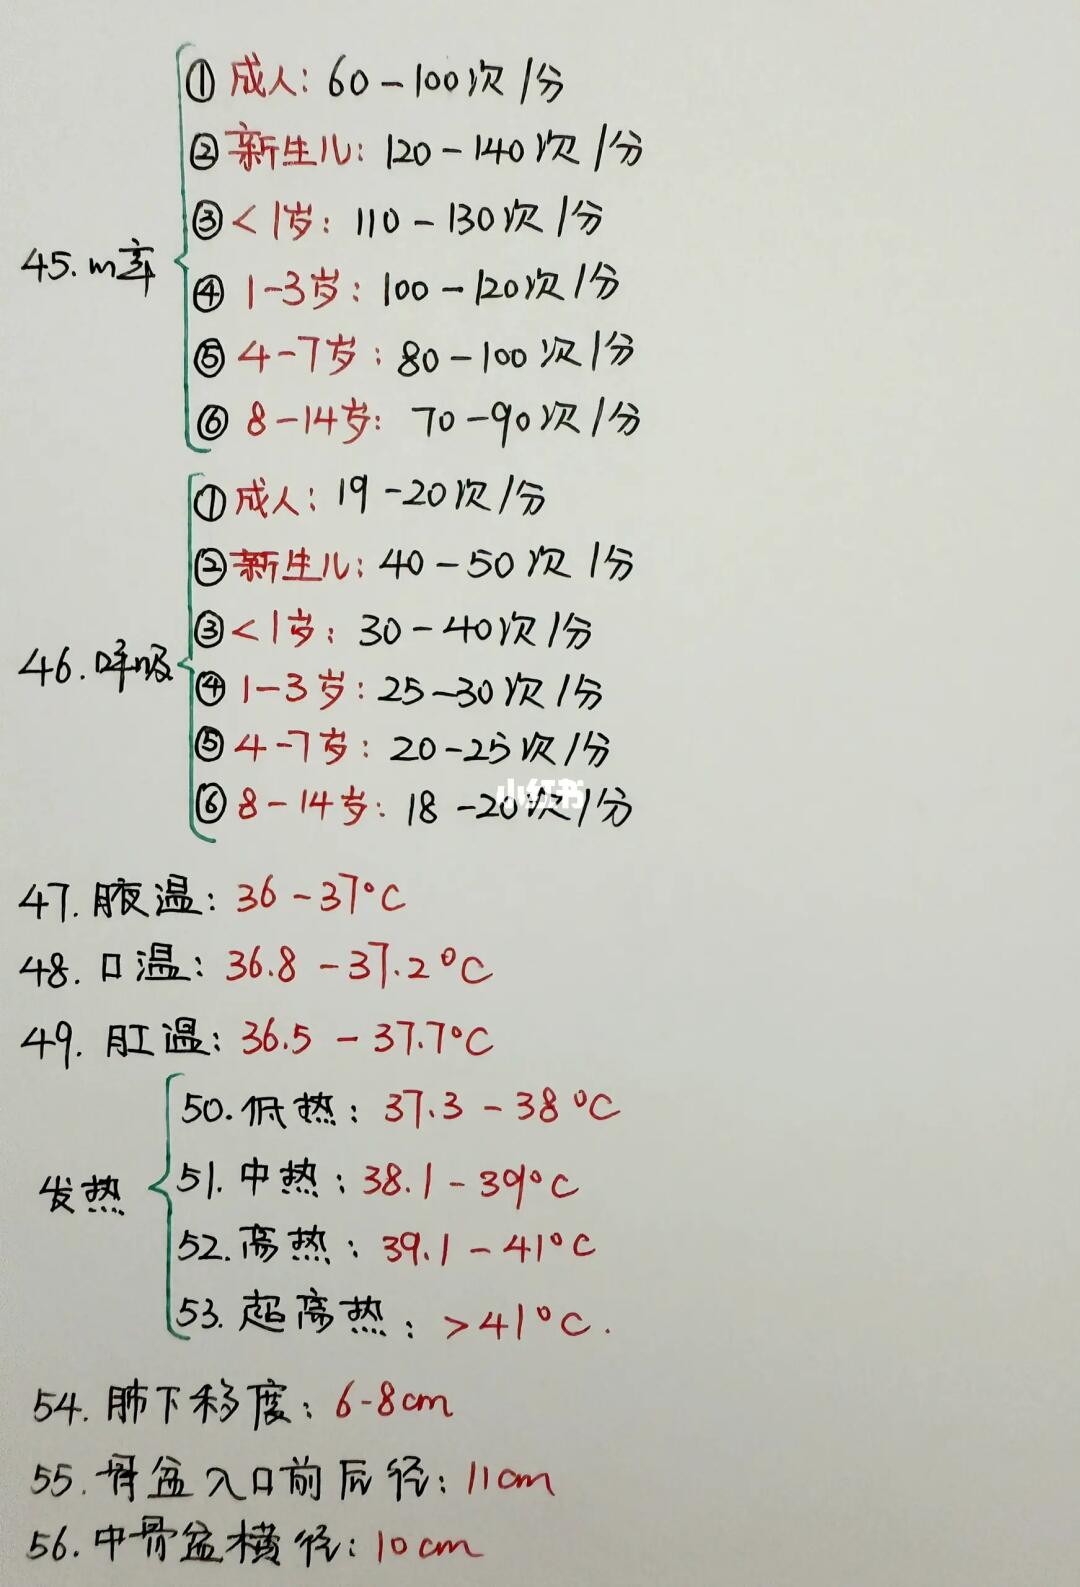 ① 成人: 60-100次/分
② 新生儿: 120-140次/分
③ <1岁: 110-130次/分
45. m率
④ 1-3岁: 100-120次/分
⑤ 4-7岁: 80-100次/分
⑥ 8-14岁: 70-90次/分
① 成人: 19-20次/分
② 新生儿: 40-50次/分
③ <1岁: 30-40次/分
46. 呼吸
④ 1-3岁: 25-30次/分
⑤ 4-7岁: 20-25次/分
⑥ 8-14岁: 18-20次/分
小红书
47. 腋温: 36-37°C
48. 口温: 36.8-37.2°C
49. 肛温: 36.5-37.7°C
50. 低热: 37.3-38°C
51. 中热: 38.1-39°C
发热
52. 高热: 39.1-41°C
53. 超高热: >41°C.
54. 肺下移度: 6-8cm
55. 骨盆入口前后径: 11cm
56. 中骨盆横径: 10cm